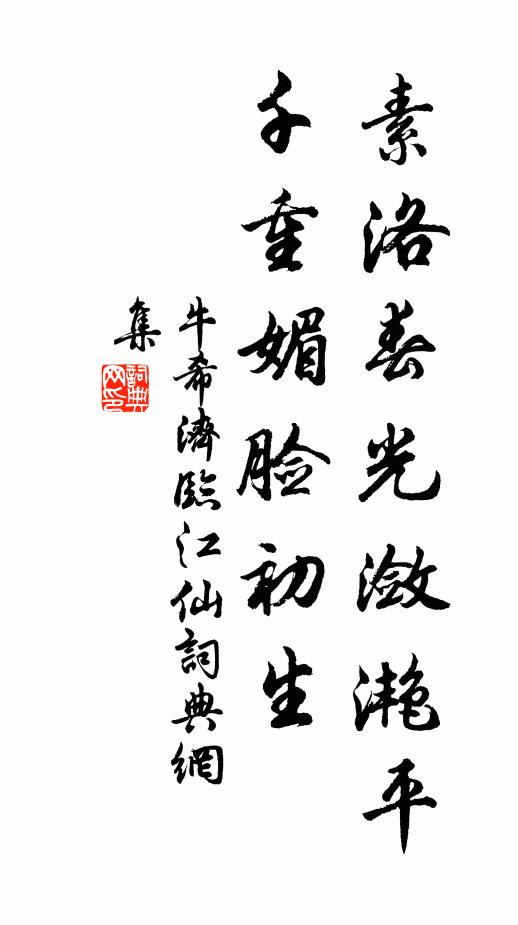 素洛春光潋灔平
千重媚脸初生
牛希濟臨江仙詞典網
集
詞典
网印